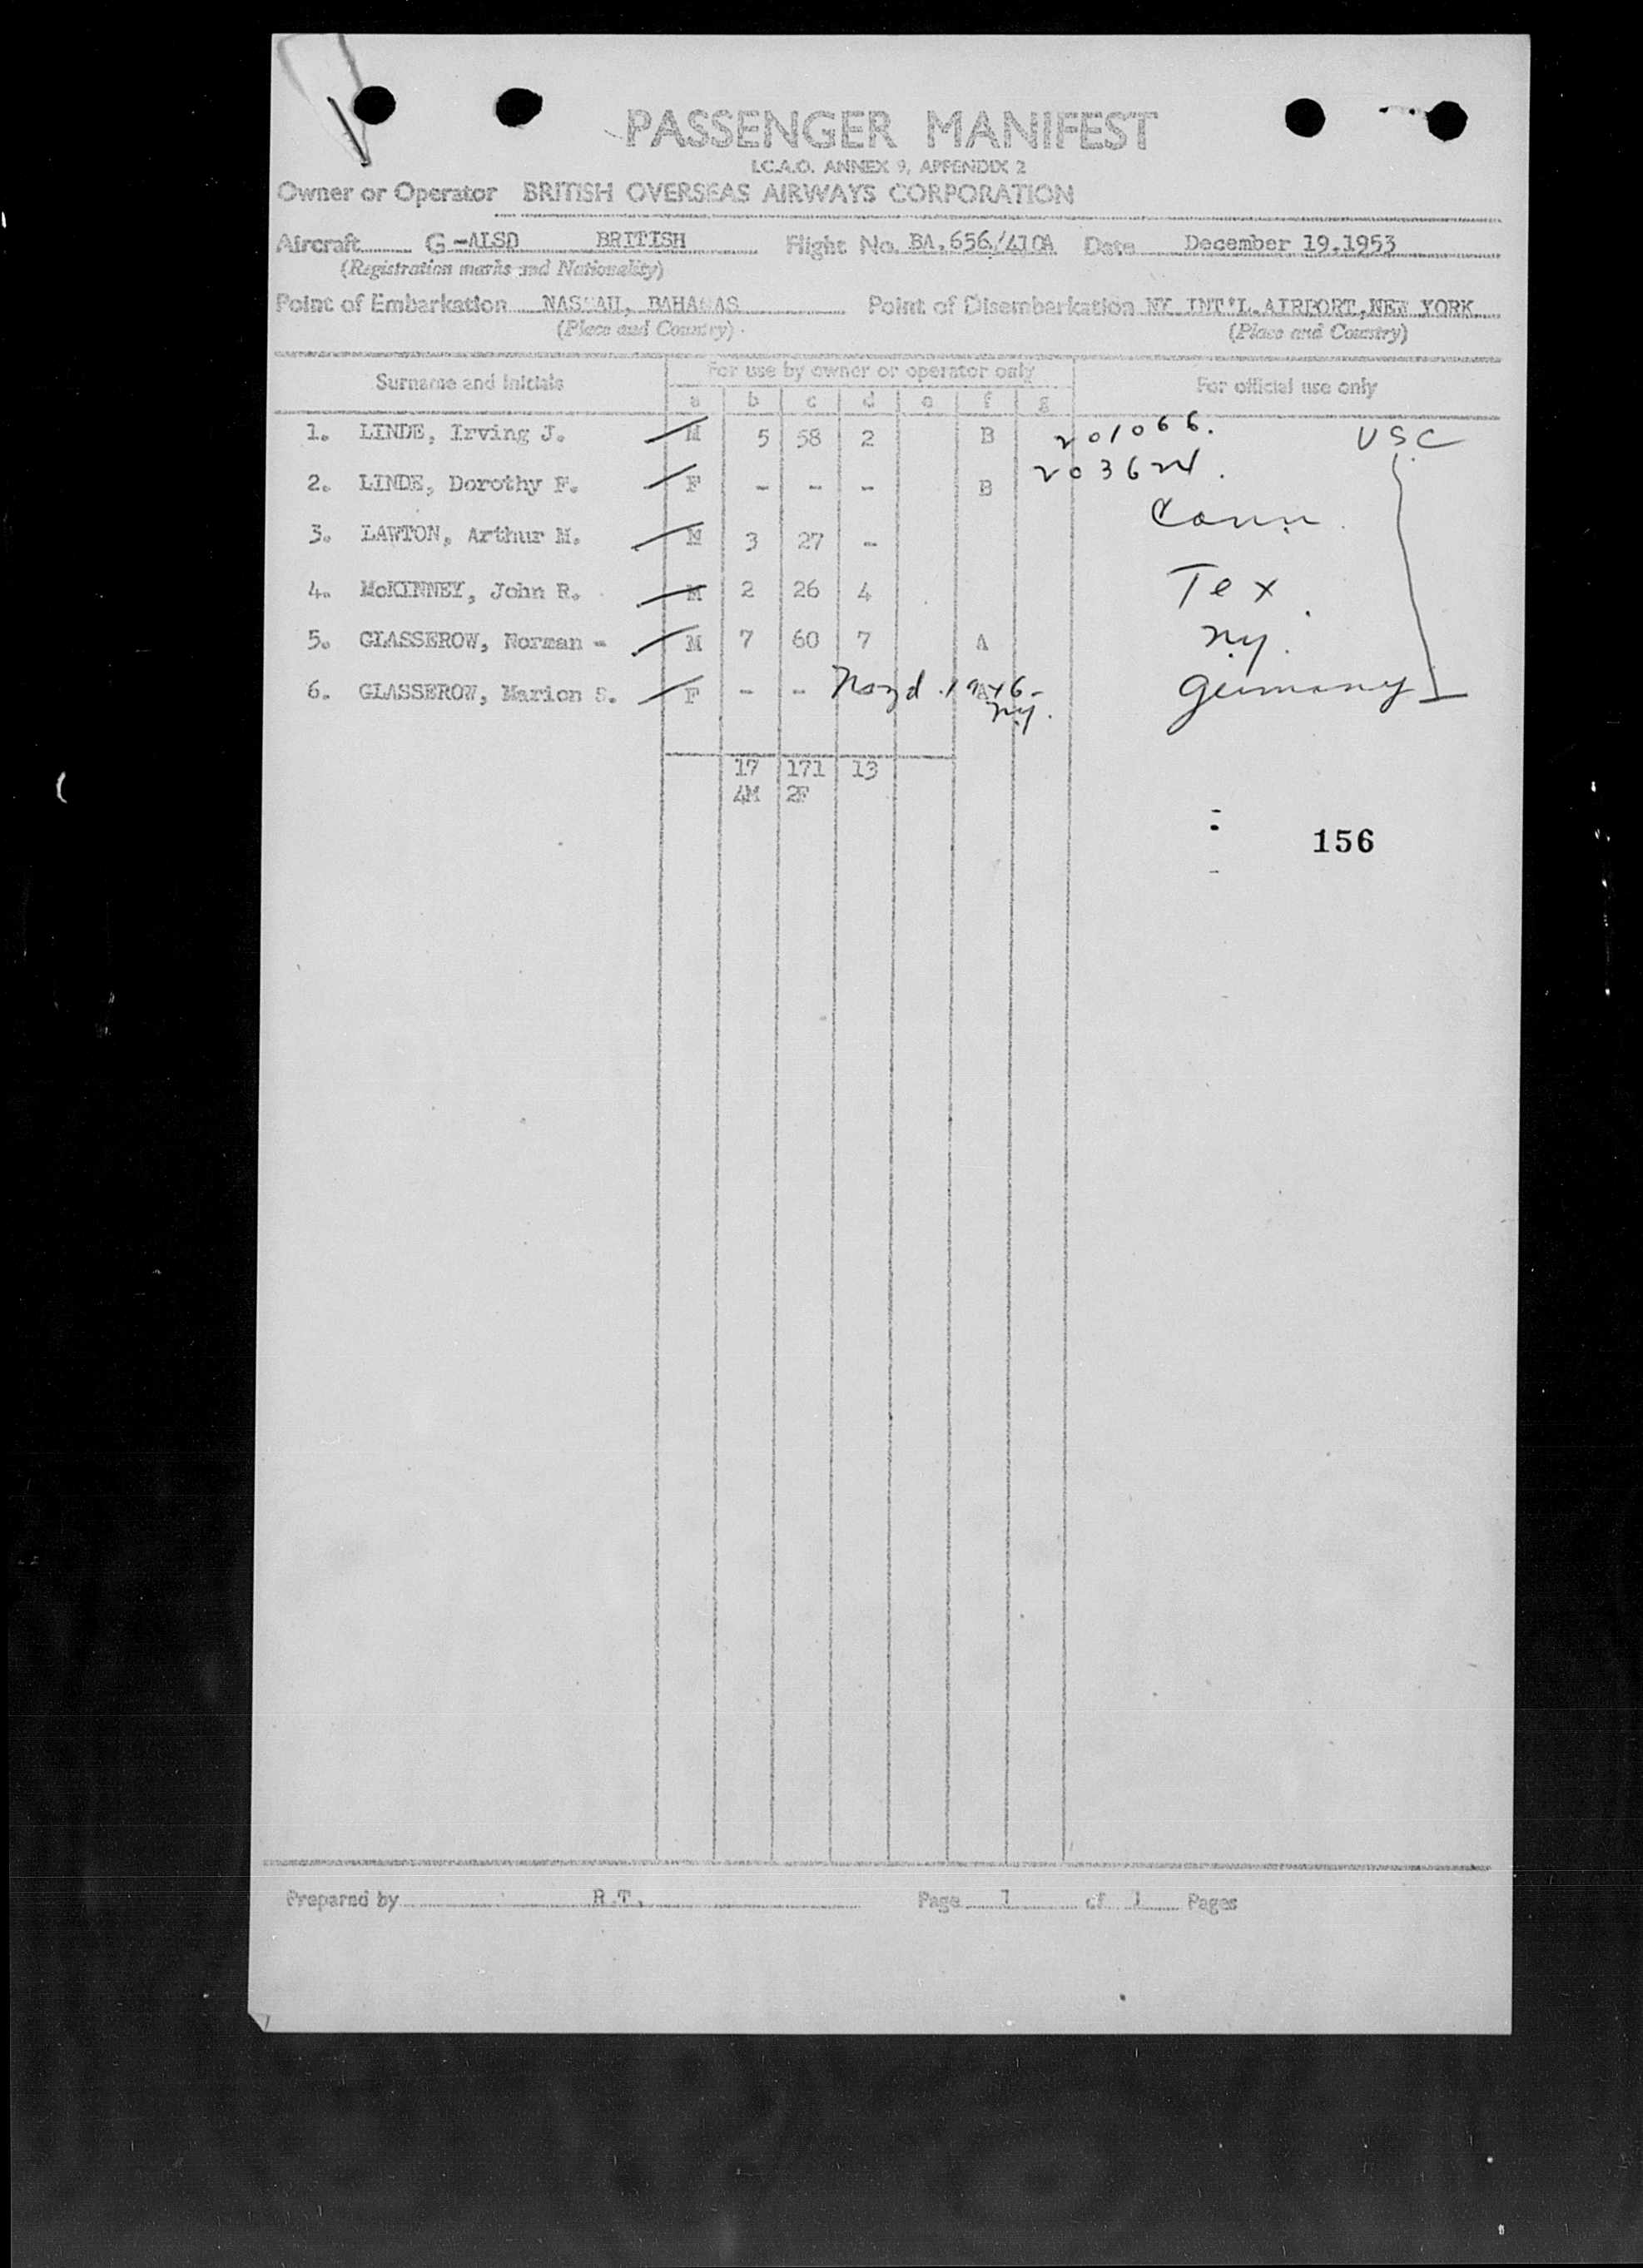 PASSENGER MANIFEST
I.C.A.O. ANNEX 9, APPENDIX 2
Owner or Operator BRITISH OVERSEAS AIRWAYS CORPORATION
Aircraft G-ALSD BRITISH Flight No. BA.656/410A Date December 19.1953
(Registration marks and Nationality)
Point of Embarkation NASSAU, BAHAMAS Point of Disembarkation NY INT'L.AIRPORT,NEW YORK
(Place and Country) (Place and Country)
Surname and Initials For use by owner or operator only For official use only
a b c d e f g
1. LINDE, Irving J. M 5 58 2 B 201066. USC
2. LINDE, Dorothy F. F - - - B 203624.
3. LAWTON, Arthur M. M 3 27 - Conn.
4. McKINNEY, John R. M 2 26 4 Tex.
5. GLASSEROW, Norman - M 7 60 7 A NY.
6. GLASSEROW, Marion S. F - - A 1946- Germany
NY.
17 171 13
4M 2F
156
Prepared by R.T. Page 1 of 1 Pages